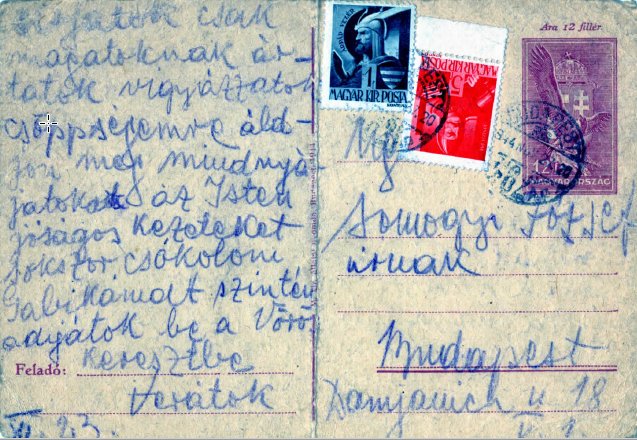 csak
magatoknak ár-
tatok vigyázzatok
csöppségemre áld-
jon meg mindnyá-
jatokat az Isten
jóságos kezeteket
sokszor csókolom
Gabikámat szintén
adjátok be a Vörös
Keresztbe
Feladó:
Verátok
Ára 12 fillér.
ÁRPÁD VEZÉR
1
MAGYAR KIR. POSTA
MAGYAR KIR. POSTA
5
BUDAPEST
12
MAGYARORSZÁG
Somogyi József
úrnak
Budapest
Damjanich u 18